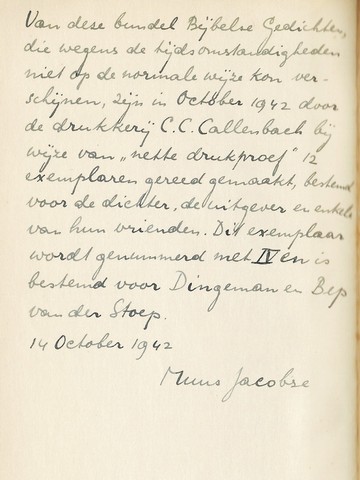 Van deze bundel Bijbelse Gedichten,
die wegens de tijdsomstandigheden
niet op de normale wijze kon ver-
schijnen, zijn in October 1942 door
de drukkerij C.C. Callenbach bij
wijze van „nette drukproef" 12
exemplaren gereed gemaakt, bestemd
voor de dichter, de uitgever en enkele
van hun vrienden. Dit exemplaar
wordt genummerd met IV en is
bestemd voor Dingeman en Bep
van der Stoep.
14 October 1942
Muus Jacobse